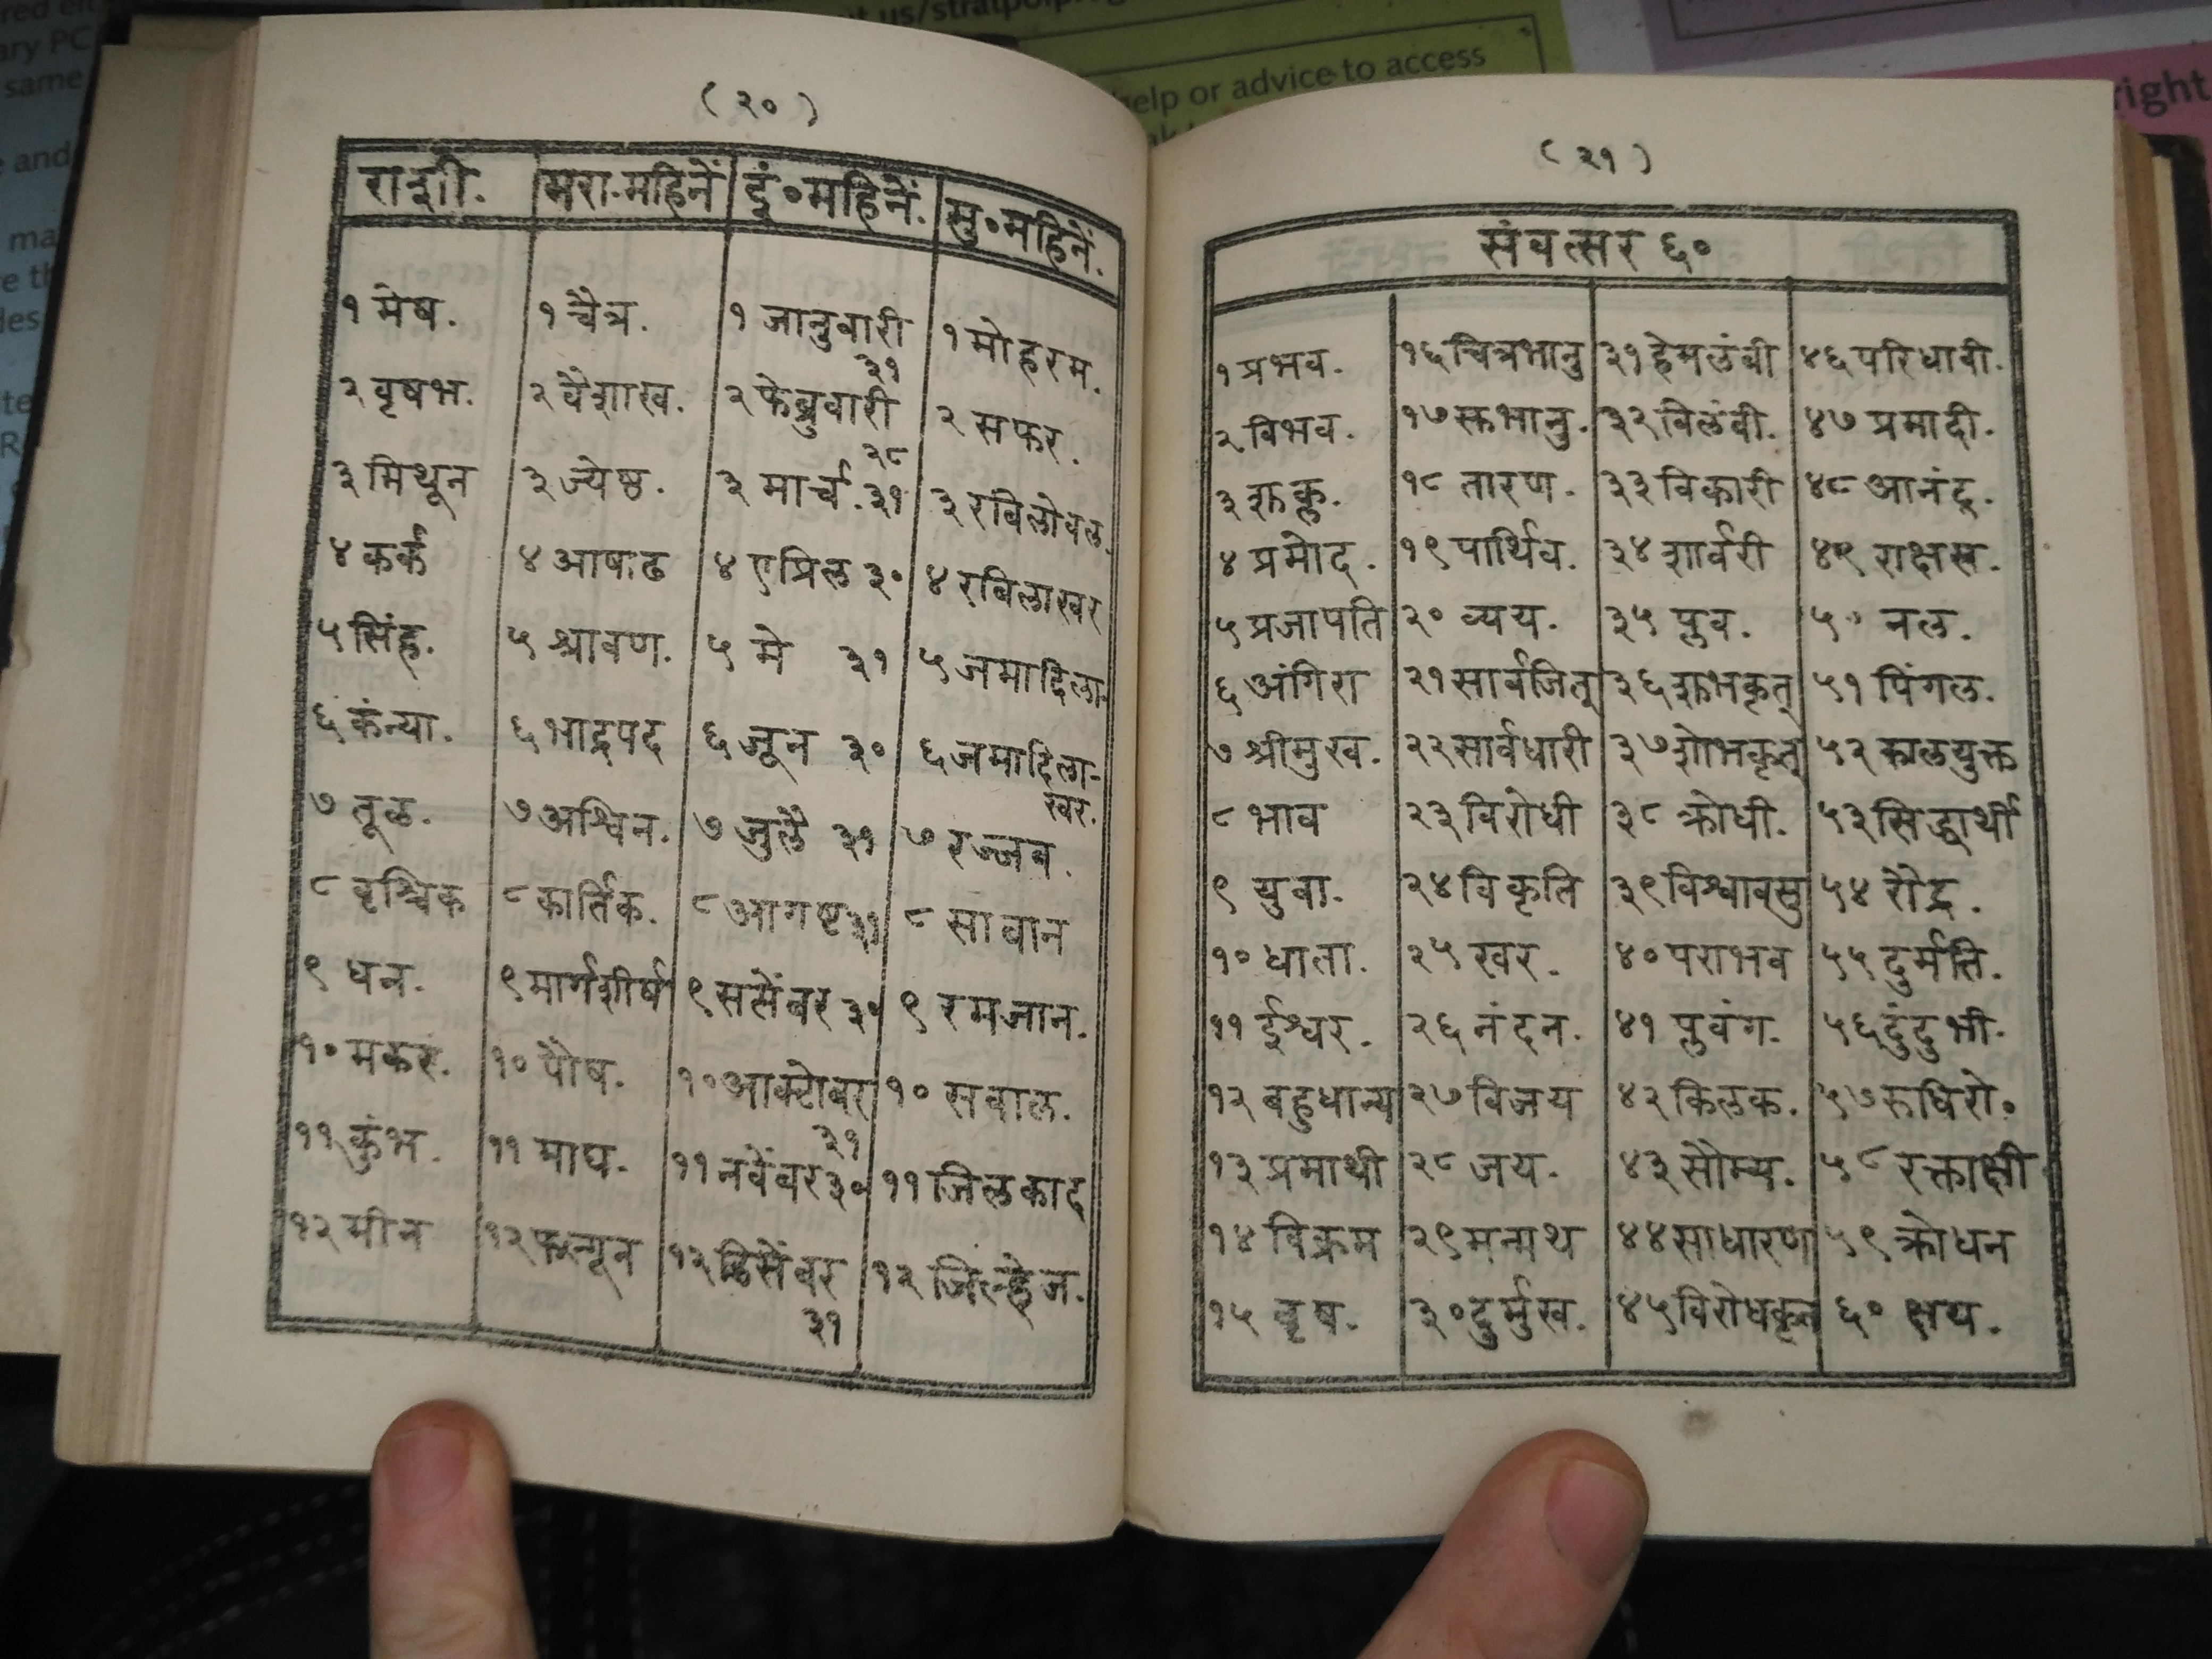 us/stratpolprog
help or advice to access
ary PC
same
and
right
( २० )
राशी. मरा.महिनें इं॰महिनें. मु॰महिनें.
१ मेष. १ चैत्र. १ जानुवारी ३१ १ मोहरम.
२ वृषभ. २ वैशाख. २ फेब्रुवारी २८ २ सफर.
३ मिथून ३ ज्येष्ठ. ३ मार्च. ३१ ३ रबिलोवल.
४ कर्क ४ आषाढ ४ एप्रिल ३० ४ रबिलाखर
५ सिंह. ५ श्रावण. ५ मे ३१ ५ जमादिला-
६ कंन्या. ६ भाद्रपद ६ जून ३० ६ जमादिला-
खर.
७ तूळ. ७ अश्विन. ७ जुलै ३१ ७ रज्जब.
८ वृश्चिक ८ कार्तिक. ८ आगष्ट ३१ ८ साबान
९ धन. ९ मार्गशीर्ष ९ सप्तेंबर ३० ९ रमजान.
१० मकर. १० पौष. १० आक्टोबर ३१ १० सवाल.
११ कुंभ. ११ माघ. ११ नवेंबर ३० ११ जिलकाद
१२ मीन १२ फाल्गून १२ डिसेंबर ३१ १२ जिल्हेज.
( २१ )
संवत्सर ६०
१ प्रभव. १६ चित्रभानु ३१ हेमलंबी ४६ परिधावी.
२ विभव. १७ स्वभानु. ३२ विलंबी. ४७ प्रमादी.
३ शुक्ल. १८ तारण. ३३ विकारी ४८ आनंद.
४ प्रमोद. १९ पार्थिव. ३४ शार्वरी ४९ राक्षस.
५ प्रजापति २० व्यय. ३५ प्लव. ५० नल.
६ अंगिरा २१ सार्वजित् ३६ शुभकृत् ५१ पिंगल.
७ श्रीमुख. २२ सार्वधारी ३७ शोभकृत् ५२ कालयुक्त
८ भाव २३ विरोधी ३८ क्रोधी. ५३ सिद्धार्थी
९ युवा. २४ विकृति ३९ विश्वावसु ५४ रौद्र.
१० धाता. २५ खर. ४० पराभव ५५ दुर्मति.
११ ईश्वर. २६ नंदन. ४१ प्लवंग. ५६ दुंदुभी.
१२ बहुधान्य २७ विजय ४२ किलक. ५७ रूधिरो॰
१३ प्रमाथी २८ जय. ४३ सौम्य. ५८ रक्ताक्षी
१४ विक्रम २९ मन्मथ ४४ साधारण ५९ क्रोधन
१५ वृष. ३० दुर्मुख. ४५ विरोधकृत ६० क्षय.